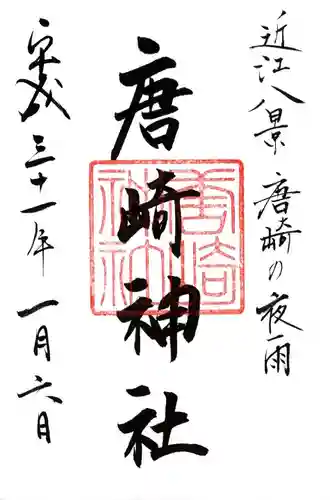 近江八景 唐崎の夜雨
唐崎神社
唐崎神社
平成三十一年 一月六日